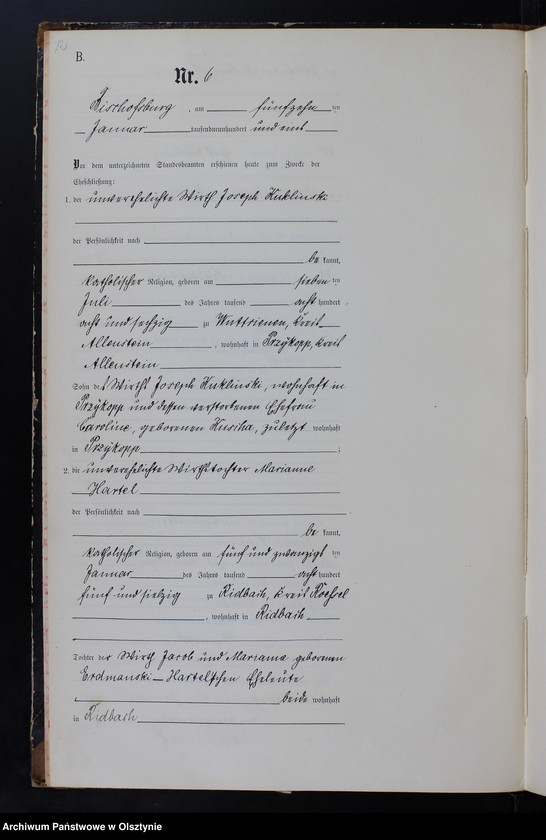 B.
Nr. 6
Bischofsburg, am fünfzehn ten
Januar tausendneunhundert und eins
Vor dem unterzeichneten Standesbeamten erschienen heute zum Zwecke der
Eheschließung:
1. der unverehelichte Wirth Joseph Kuklinski
der Persönlichkeit nach
be kannt,
katholischer Religion, geboren am sieben ten
Juli des Jahres tausend acht hundert
acht und sechzig zu Wuttrienen, Kreis
Allenstein, wohnhaft in Przykopp, Kreis
Allenstein
Sohn des Wirths Joseph Kuklinski, wohnhaft in
Przykopp und dessen verstorbenen Ehefrau
Caroline, geborenen Kuscha, zuletzt wohnhaft
in Przykopp;
2. die unverehelichte Wirthstochter Marianne
Hartel
der Persönlichkeit nach
be kannt,
katholischer Religion, geboren am fünf und zwanzigs ten
Januar des Jahres tausend acht hundert
fünf und siebzig zu Ridbach, Kreis Roessel
, wohnhaft in Ridbach
Tochter der Wirth Jacob und Marianne geborenen
Erdmanski-Hartel'schen Eheleute
beide wohnhaft
in Ridbach
Archiwum Państwowe w Olsztynie